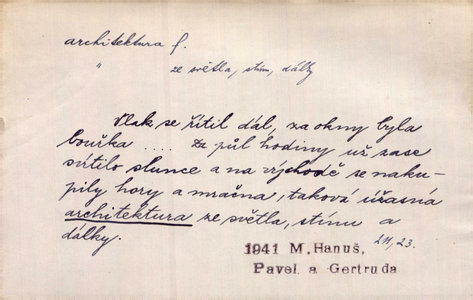 architektura f.
" ze světla, stínu, dálky
Vlak se řítil dál, za okny byla
bouřka .... Za půl hodiny už zase
svítilo slunce a na východě se naku-
pily hory a mračna, taková úžasná
architektura ze světla, stínu a
dálky.
1941 M. Hanuš,
Pavel a Gertruda